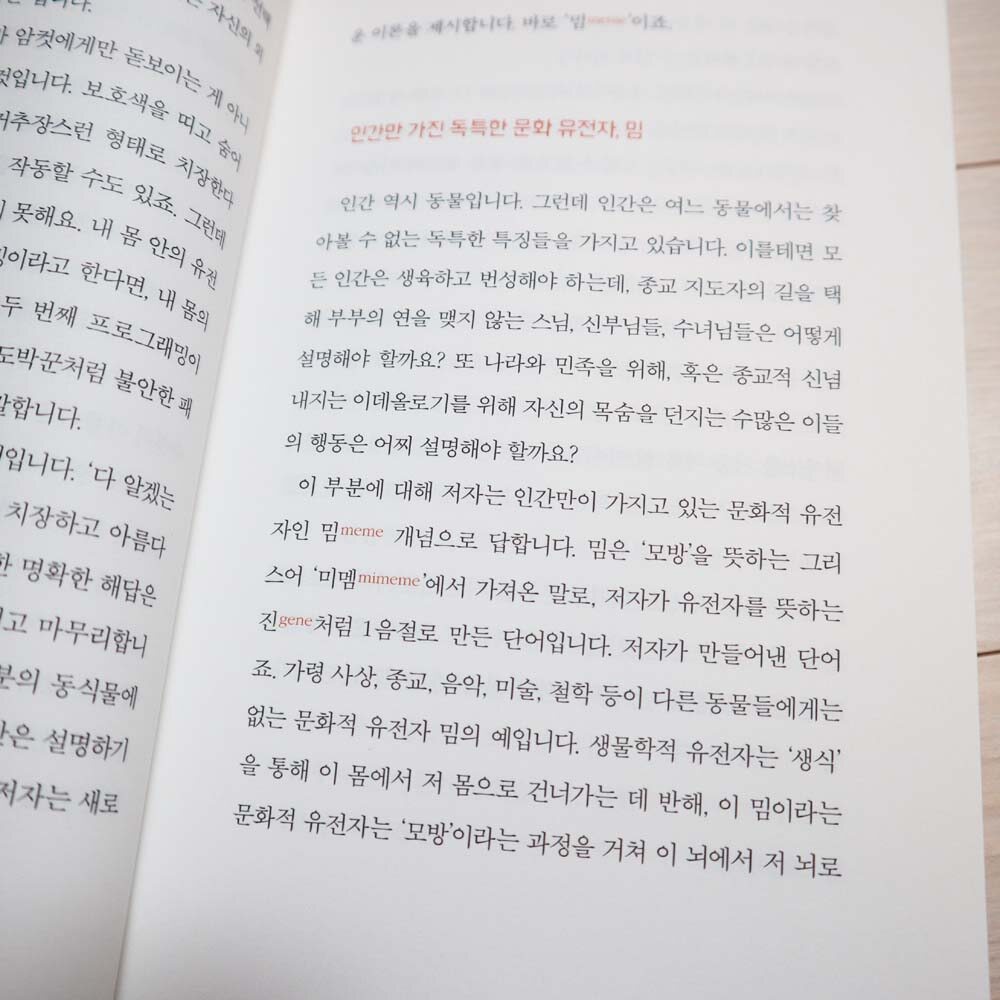 자신의 외
암컷에게만 돋보이는 게 아니
것입니다. 보호색을 띠고 숨어
거추장스런 형태로 치장한다
작동할 수도 있죠. 그런데
못해요. 내 몸 안의 유전
이라고 한다면, 내 몸의
두 번째 프로그래밍이
도박꾼처럼 불안한 패
말합니다.
입니다. ‘다 알겠는
치장하고 아름다
한 명확한 해답은
고 마무리합니
분의 동식물에
은 설명하기
저자는 새로
운 이론을 제시합니다. 바로 ‘밈meme’이죠.
인간만 가진 독특한 문화 유전자, 밈
인간 역시 동물입니다. 그런데 인간은 여느 동물에서는 찾
아볼 수 없는 독특한 특징들을 가지고 있습니다. 이를테면 모
든 인간은 생육하고 번성해야 하는데, 종교 지도자의 길을 택
해 부부의 연을 맺지 않는 스님, 신부님들, 수녀님들은 어떻게
설명해야 할까요? 또 나라와 민족을 위해, 혹은 종교적 신념
내지는 이데올로기를 위해 자신의 목숨을 던지는 수많은 이들
의 행동은 어찌 설명해야 할까요?
이 부분에 대해 저자는 인간만이 가지고 있는 문화적 유전
자인 밈meme 개념으로 답합니다. 밈은 ‘모방’을 뜻하는 그리
스어 ‘미멤mimeme’에서 가져온 말로, 저자가 유전자를 뜻하는
진gene처럼 1음절로 만든 단어입니다. 저자가 만들어낸 단어
죠. 가령 사상, 종교, 음악, 미술, 철학 등이 다른 동물들에게는
없는 문화적 유전자 밈의 예입니다. 생물학적 유전자는 ‘생식’
을 통해 이 몸에서 저 몸으로 건너가는 데 반해, 이 밈이라는
문화적 유전자는 ‘모방’이라는 과정을 거쳐 이 뇌에서 저 뇌로